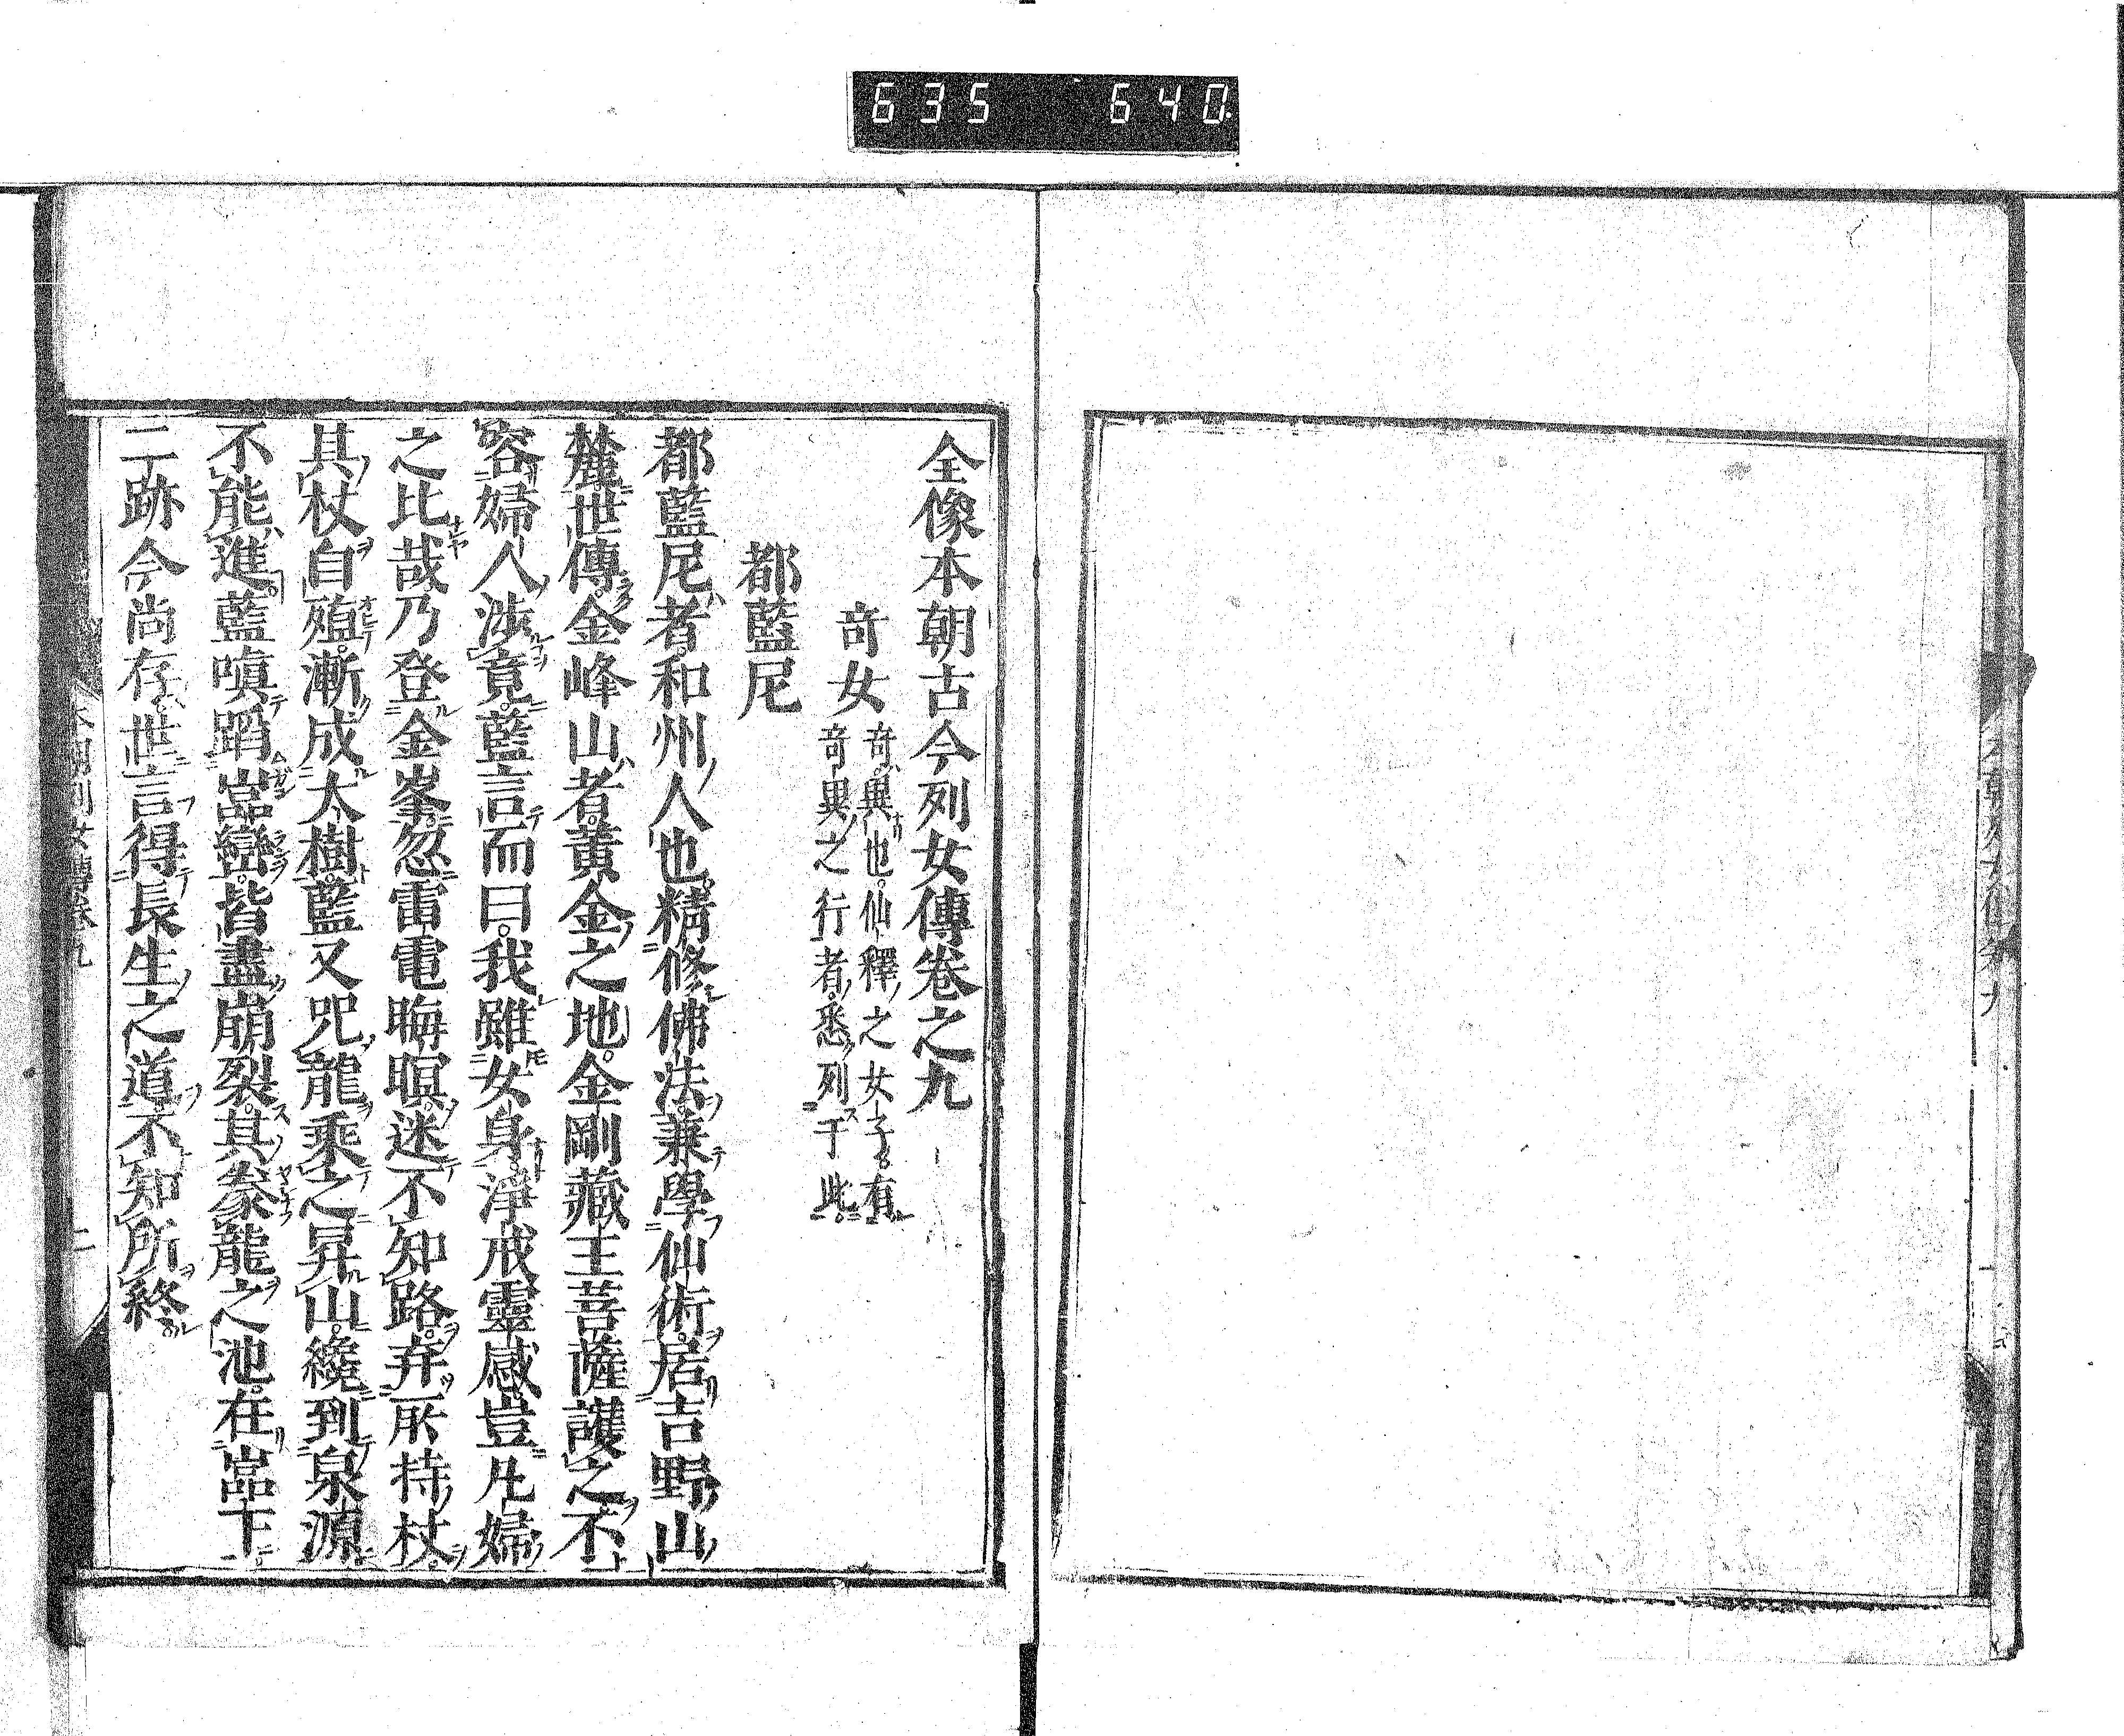 635 640
全像本朝古今列女傳卷之九
奇女
奇異也仙釋之女子有
奇異之行者悉列于此
都藍尼
都藍尼者和州人也精修佛法兼學仙術居吉野山
麓世傳金峰山者黃金之地金剛藏王菩薩護之不
容婦人涉竟藍言而曰我雖女身淨戒靈感豈凡婦
之比哉乃登金峯忽雷電晦暝迷不知路弃所持杖
其杖自殖漸成大樹藍又咒龍乘之昇山纔到泉源
不能進藍嗔蹈嵓巒皆盡崩裂其豢龍之池在嵓下
二跡今尚存世言得長生之道不知所終